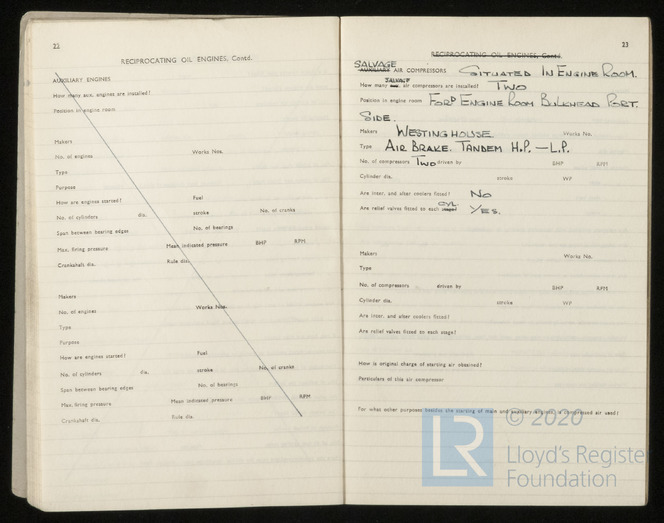 22
RECIPROCATING OIL ENGINES, Contd.
AUXILIARY ENGINES
How many aux. engines are installed?
Position in engine room
Makers
No. of engines Works Nos.
Type
Purpose
How are engines started? Fuel
No. of cylinders dia. stroke No. of cranks
Span between bearing edges No. of bearings
Max. firing pressure Mean indicated pressure BHP RPM
Crankshaft dia. Rule dia.
Makers
No. of engines Works Nos.
Type
Purpose
How are engines started? Fuel
No. of cylinders dia. stroke No. of cranks
Span between bearing edges No. of bearings
Max. firing pressure Mean indicated pressure BHP RPM
Crankshaft dia. Rule dia.
23
RECIPROCATING OIL ENGINES, Contd.
SALVAGE
AUXILIARY AIR COMPRESSORS SITUATED IN ENGINE ROOM.
How many SALVAGE air compressors are installed? TWO
Position in engine room FORD ENGINE ROOM BULKHEAD PORT.
SIDE.
Makers WESTINGHOUSE Works No.
Type AIR BRAKE. TANDEM H.P. — L.P.
No. of compressors TWO driven by BHP RPM
Cylinder dia. stroke WP
Are inter. and after coolers fitted? NO
Are relief valves fitted to each stage? CYL. YES.
Makers Works No.
Type
No. of compressors driven by BHP RPM
Cylinder dia. stroke WP
Are inter. and after coolers fitted?
Are relief valves fitted to each stage?
How is original charge of starting air obtained?
Particulars of this air compressor
For what other purposes besides the starting of main and auxiliary engines, is compressed air used?
© 2020
LR
Lloyd's Register
Foundation